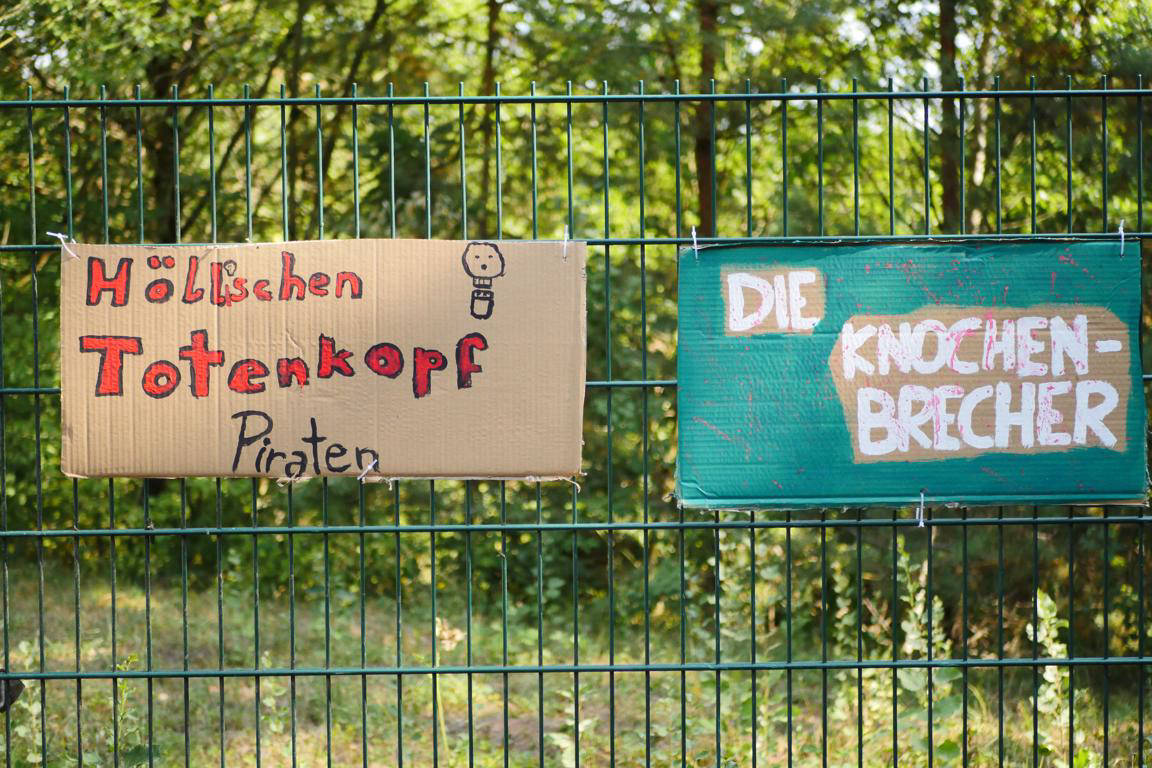 Höllischen
Totenkopf
Piraten
DIE
KNOCHEN-
BRECHER